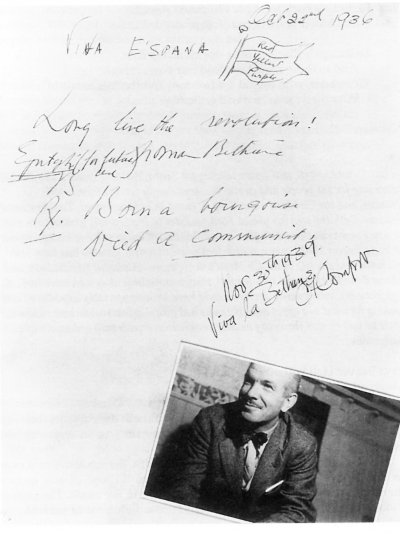 Oct 22nd 1936
VIVA ESPANA
Red
Yellow
Purple
Long live the revolution!
Epitaph (for future use) Norman Bethune
Rx. Born a bourgoise
Died a communist!
Nov 30th, 1939.
Viva la Bethune